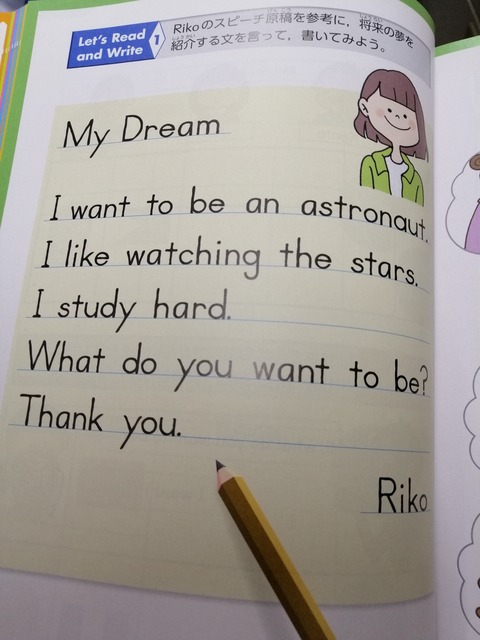 Let's Read
and Write
1
Rikoのスピーチ原稿を参考に，将来の夢を
紹介する文を言って，書いてみよう。
My Dream
I want to be an astronaut.
I like watching the stars.
I study hard.
What do you want to be?
Thank you.
Riko